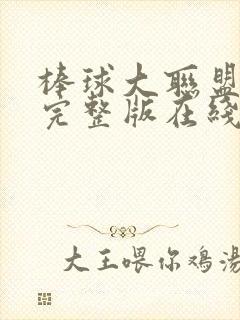 棒球大聯盟
完整版在綫
大王喂你鷄湯